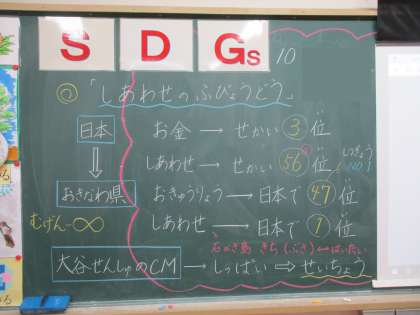 SDGs 10
◎「しあわせのふびょうどう」
日本 お金→せかい3位
⇓ しあわせ→せかい56位
おきなわ県 おきゅうりょう→日本で47位
むげん-∞ しあわせ→日本で1位
石がき島 きち(ぶき)↔はいたい
大谷せんしゅのCM→しっぱい⇒せいちょう